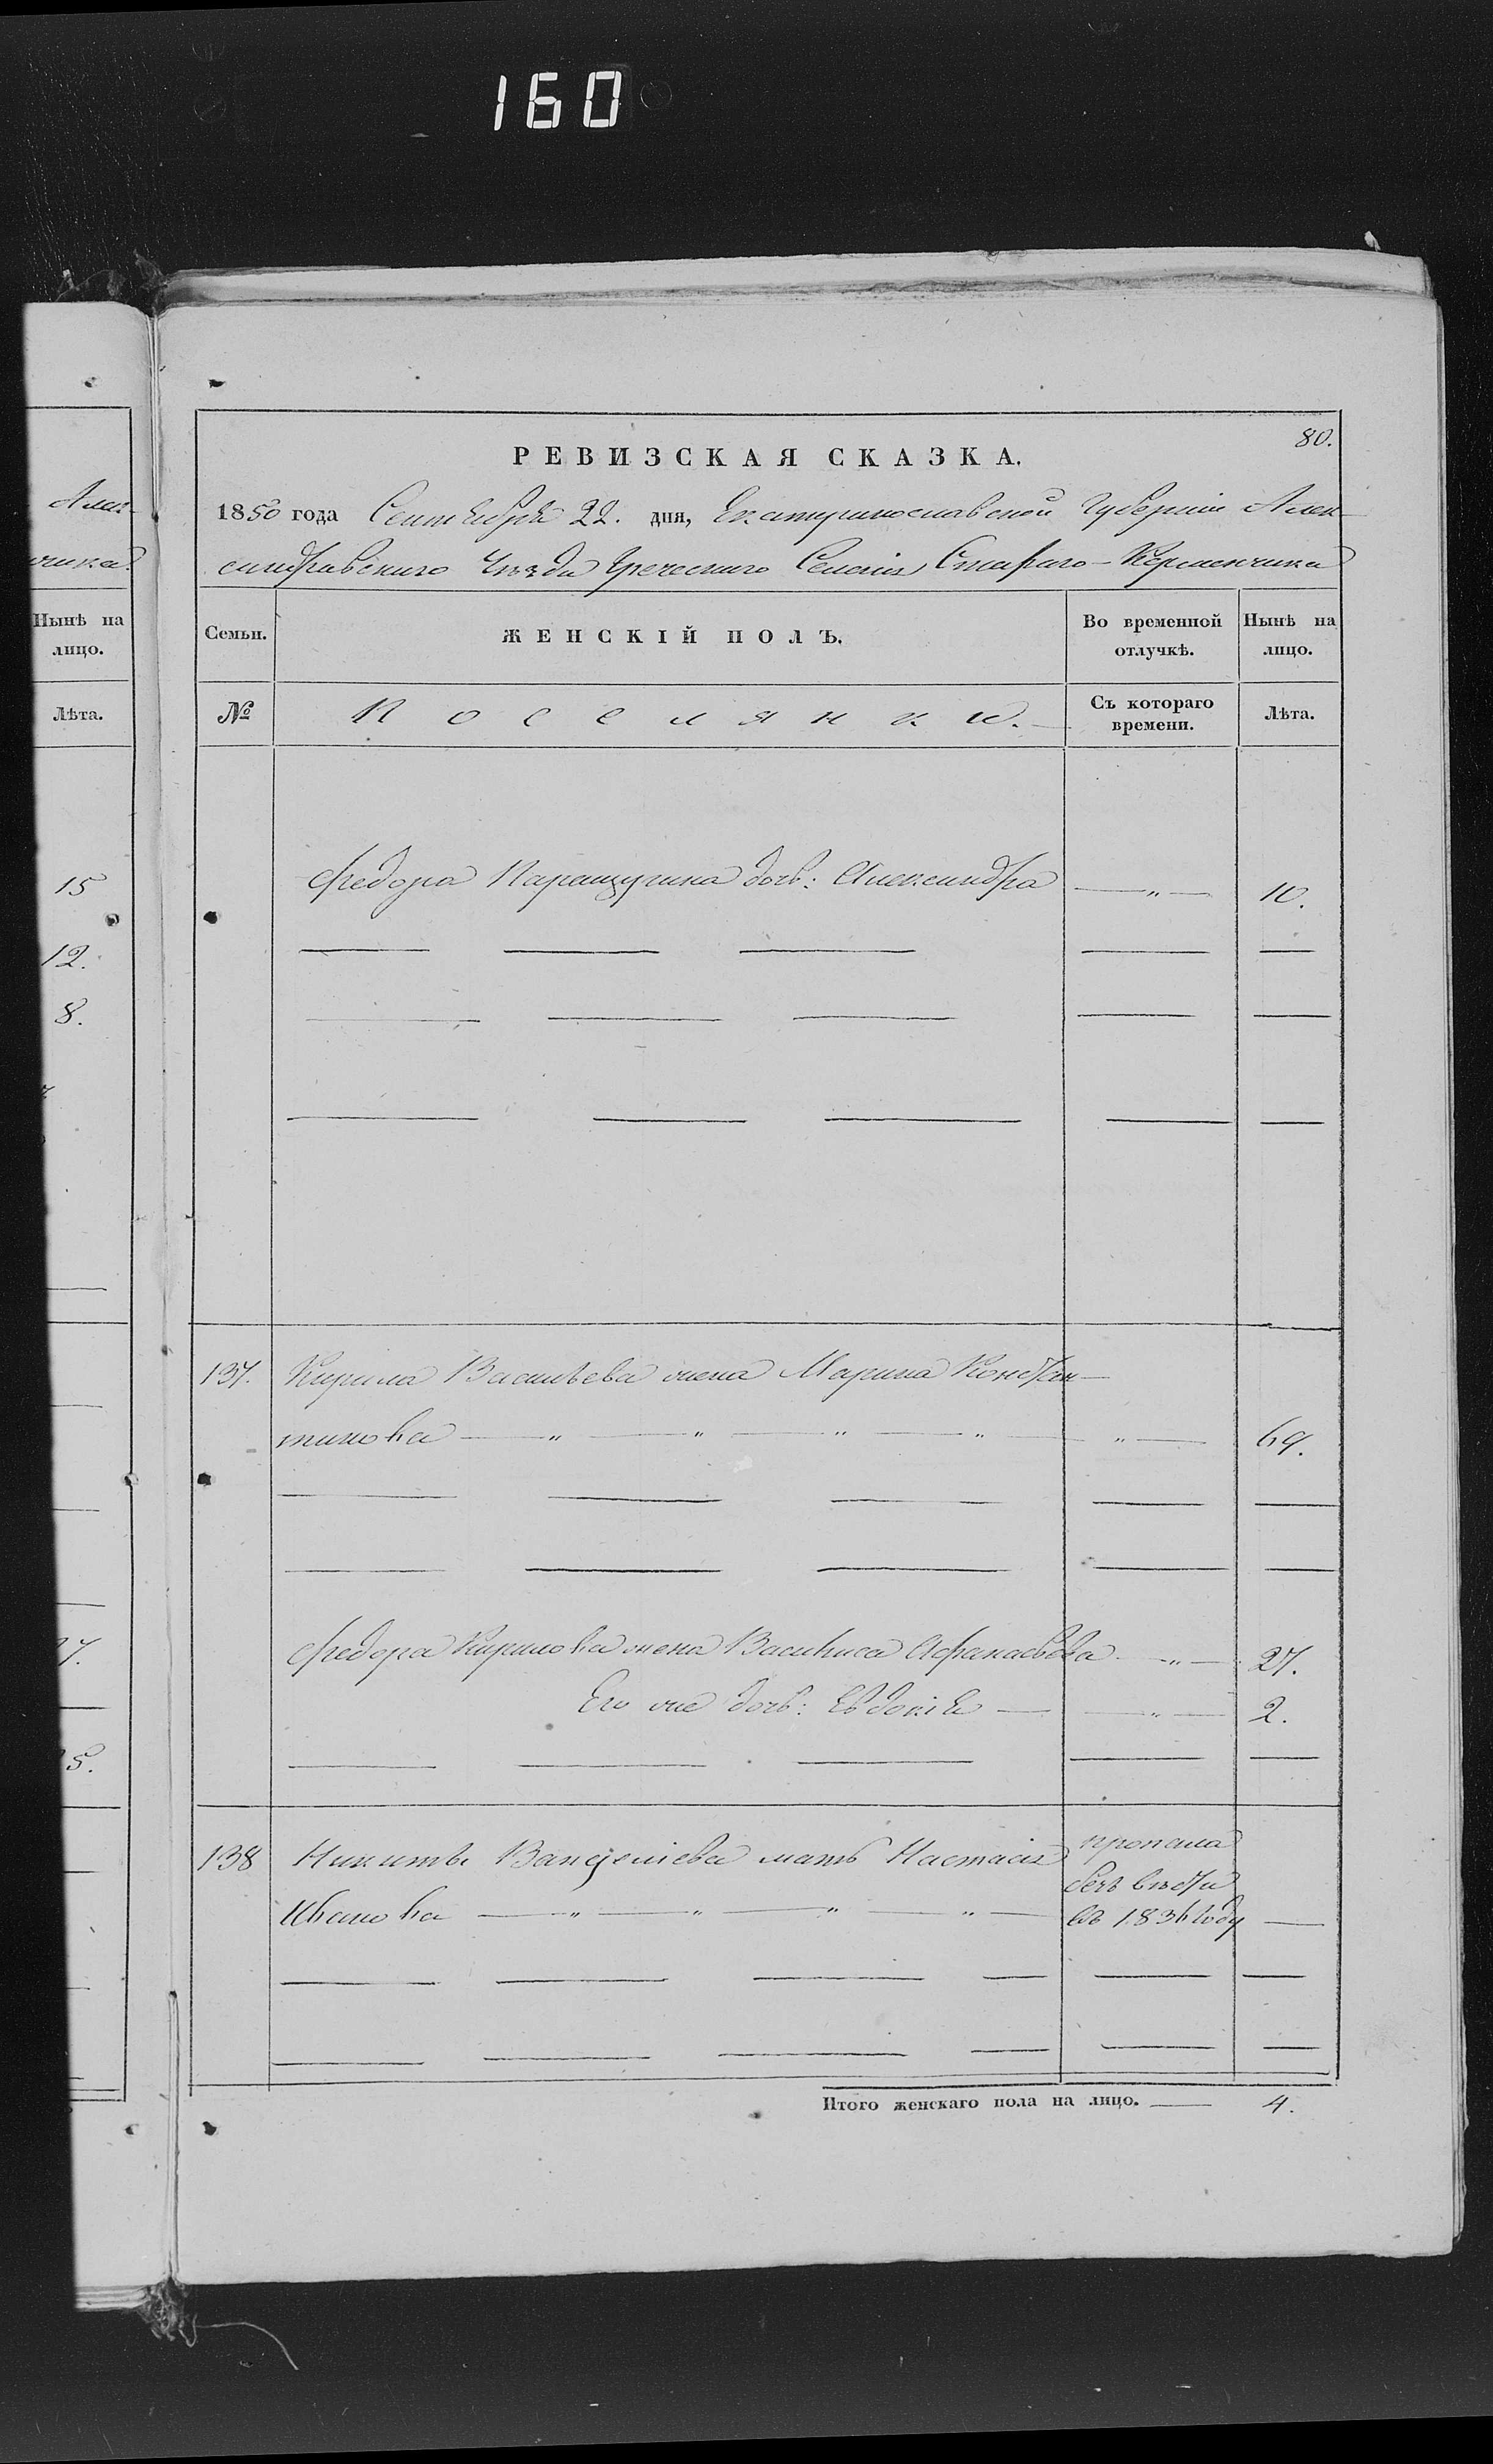 160
80.
РЕВИЗСКАЯ СКАЗКА.
1850 года Сентября 22. дня, Екатеринославской Губерніи Алек-
сандровскаго Уѣзда Греческаго Селенія Стараго-Керменчика
Алек-
чика
Нынѣ на лицо.
Лѣта.
15
12.
8.
7.
5.
Семьи.
ЖЕНСКІЙ ПОЛЪ.
Во временной отлучкѣ.
Нынѣ на лицо.
№
Поселянки.
Съ котораго времени.
Лѣта.
Федора дочь: Александра — " — 10.
137. Кирила Васильева жена Марина Констан-
тинова — " — " — " — " — " — 69.
Федора Кирилова жена Василиса Афанасьева — " — 27.
Его же дочь: Евдокія — " — 2.
138 Никиты Вангелiева мать Настасія пропала
безъ вѣсти
Иванова — " — " — " — " — въ 1836 году —
Итого женскаго пола на лицо. — 4.